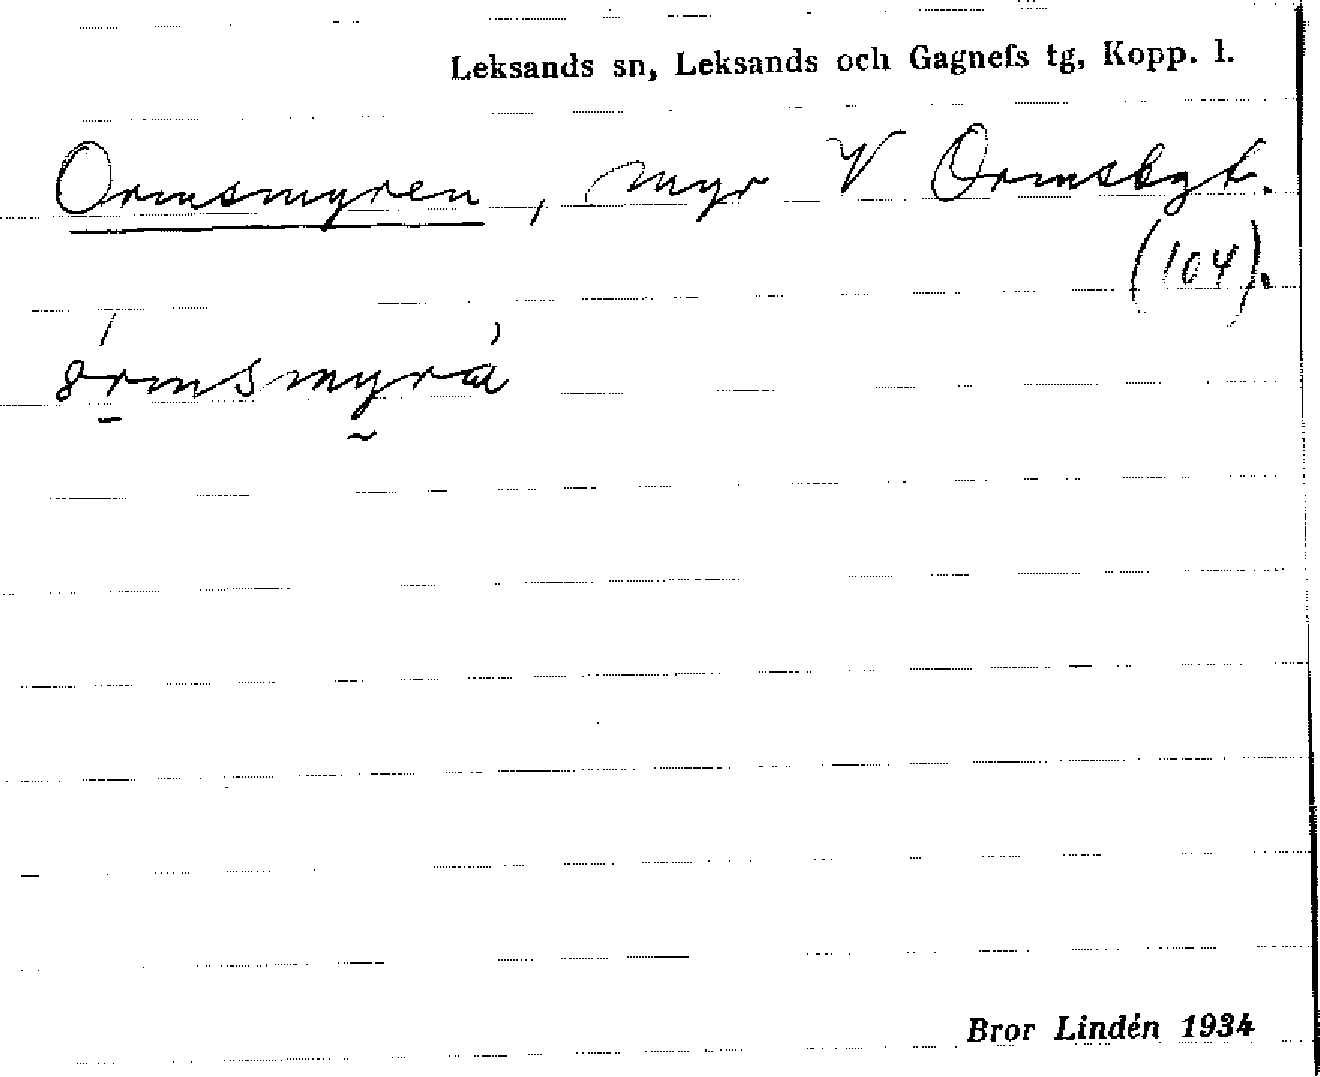 Leksands sn, Leksands och Gagnefs tg, Kopp. l.
Ormsmyren, myr V Ormsbyt.
(104).
Bror Lindén 1934